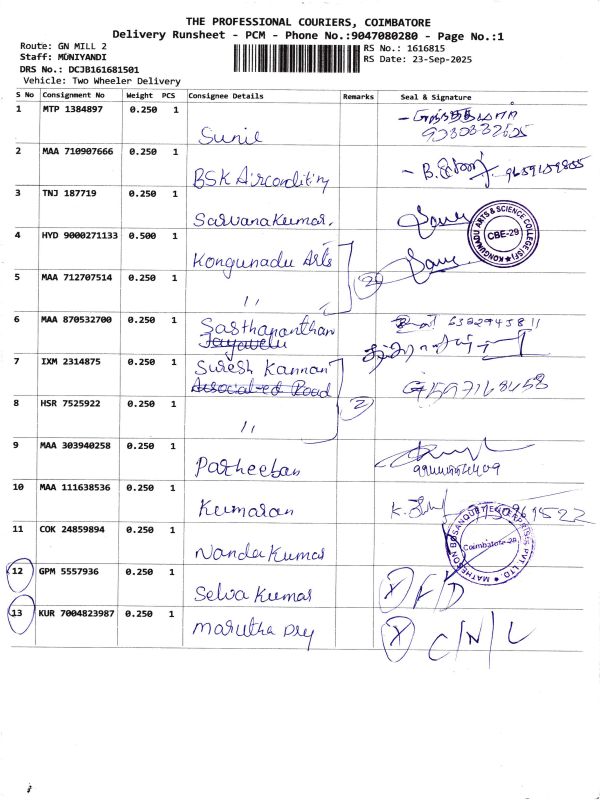 THE PROFESSIONAL COURIERS, COIMBATORE
Delivery Runsheet - PCM - Phone No.:9047080280 - Page No.:1
Route: GN MILL 2
RS No.: 1616815
Staff: MUNIYANDI
RS Date: 23-Sep-2025
DRS No.: DCJB161681501
Vehicle: Two Wheeler Delivery
S No Consignment No Weight PCS Consignee Details Remarks Seal & Signature
1 MTP 1384897 0.250 1
Sunil
2 MAA 710907666 0.250 1
BSK Airconditing
3 TNJ 187719 0.250 1
Sarvanakumar.
4 HYD 9000271133 0.500 1
Kongunadu Arts
KONGUNADU ARTS & SCIENCE COLLEGE (SF)
CBE-29
5 MAA 712707514 0.250 1
" 2
6 MAA 870532700 0.250 1
Sasthananthan
Jayavelu
7 IXM 2314875 0.250 1
Suresh Kannan
Associated Road
8 HSR 7525922 0.250 1
" 2
9 MAA 303940258 0.250 1
Partheeban
10 MAA 111638536 0.250 1
Kumaran
11 COK 24859894 0.250 1
Nanda Kumar
Coimbatore-29
12 GPM 5557936 0.250 1
Selva Kumar X F/D
13 KUR 7004823987 0.250 1
Marutha Dry X C/N/L